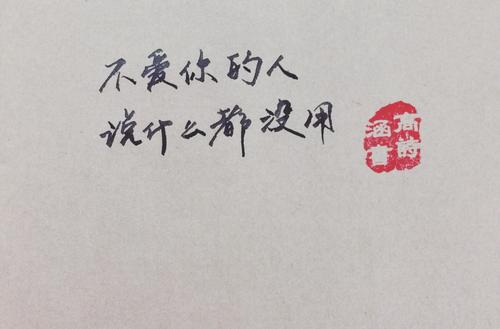 不爱你的人
说什么都没用
高詩
涵書